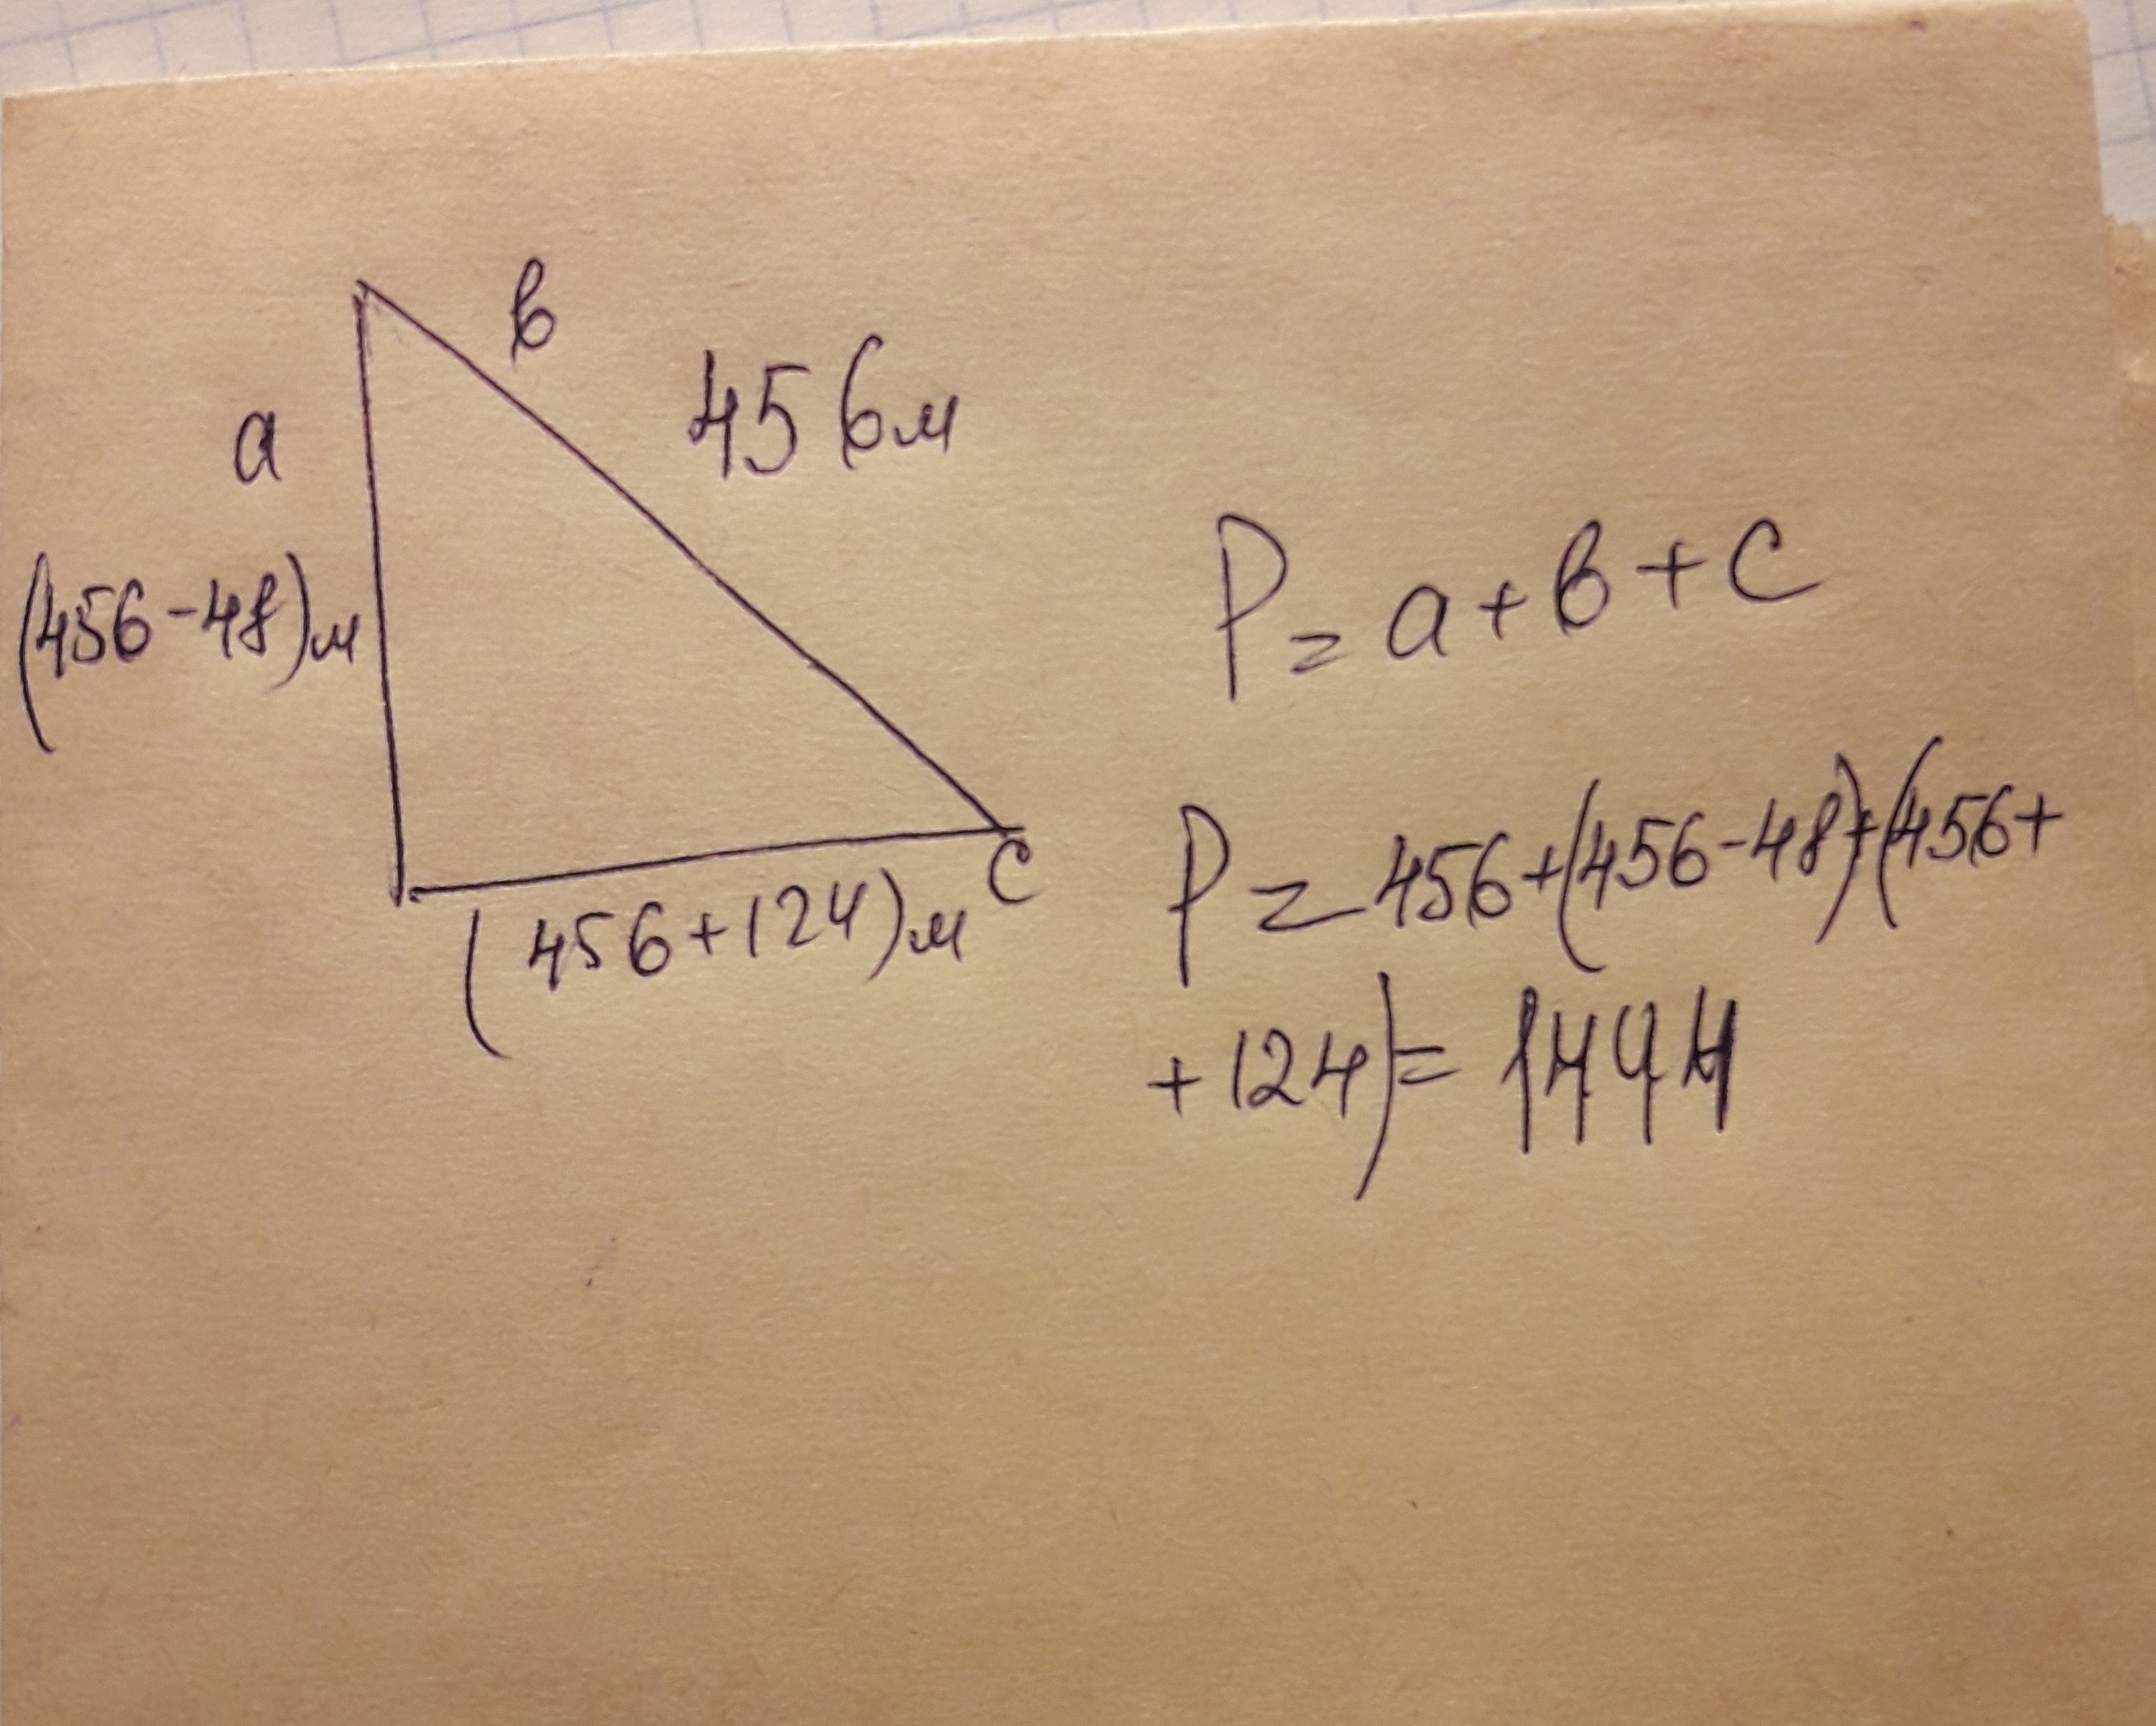 в
a
456м
(456-48)м
c
(456+124)м
P=a+в+c
P=456+(456-48)+(456+
+124)=1444